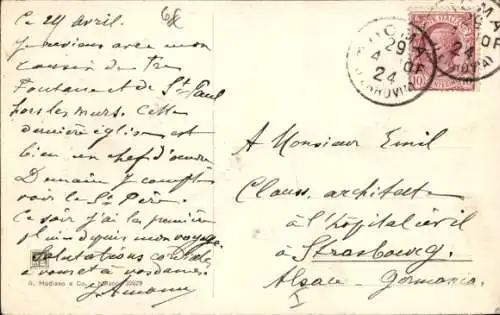 Ce 24 avril.
Je reviens avec mon
cousin de Tre
Fontane et de St Paul
hors les murs. Cette
dernière église est
bien un chef d'œuvre
Demain je compte
voir le St Père.
Ce soir j'ai la première
pluie depuis mon voyage.
Salutations cordiales
à vous et à vos dames.
G. Modiano e Co. - Milano
68
ROMA
29
4
24
10
A Monsieur Emil
Clauss, architecte
à l'hôpital civil
à Strasbourg.
Alsace - Germania.